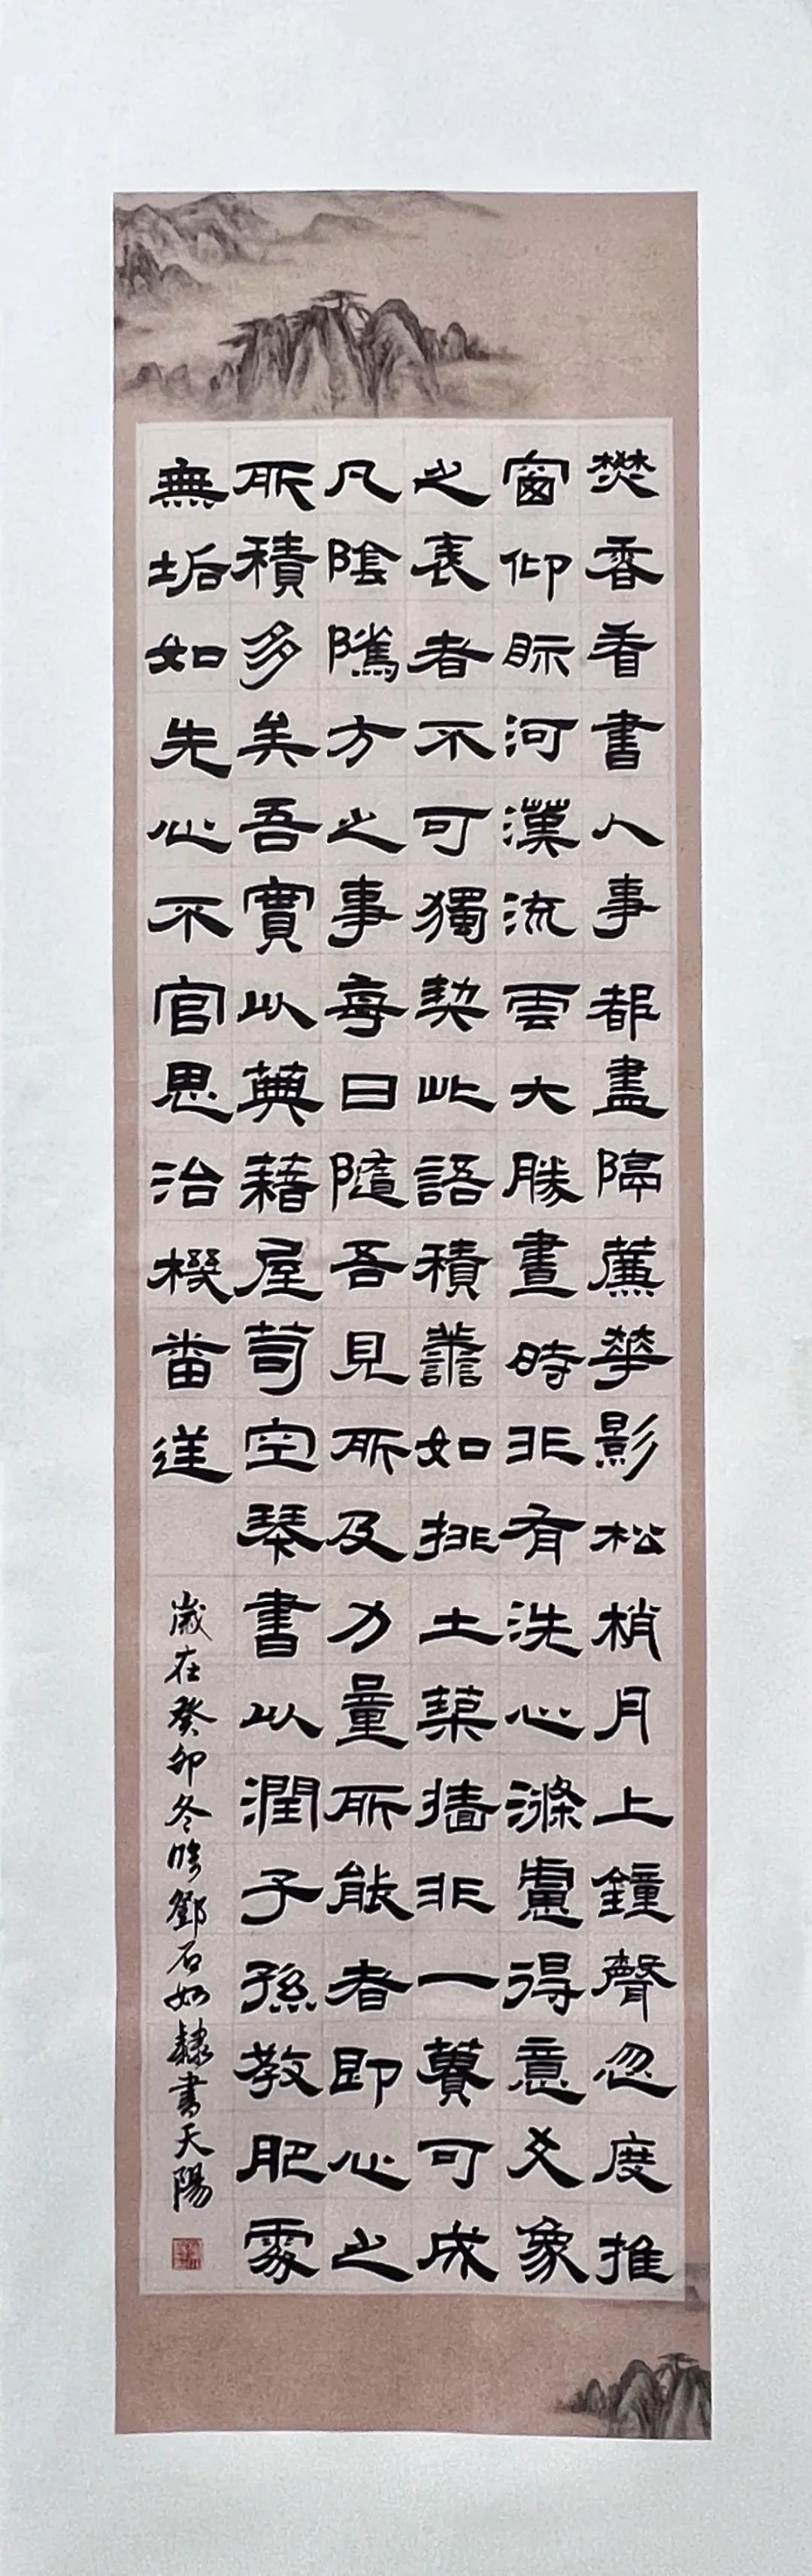 焚香看書人事都盡隔簾華影松梢月上鐘聲忽度推
窗仰眎河漢流雲大勝晝時非有洗心滌慮得意爻象
之表者不可獨契此語積譱如挑土築墻非一蕢可成
凡陰隲方之事每日隨吾見所及力量所能者即心之
所積多矣吾實以蕪藉屋苟空琴書以潤子孫教肥
無垢如先心不官思治機畨送
歲在癸卯冬臨鄧石如隸書天陽